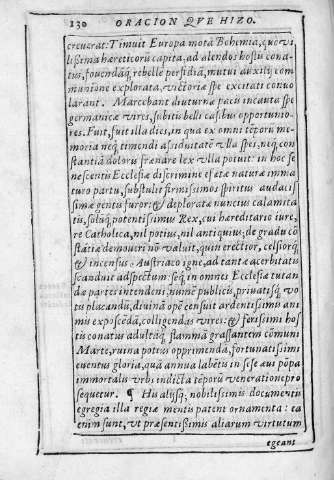 130 ORACION QVE HIZO.
creuerat: Timuit Europa motã Bohemia, quo vi
lissima hæreticorũ capita, ad alendos hostiũ cona
tus, fouendãq; rebelle perfidia, mutui auxilij com
munione explorata, victoriæ spe excitati conuo
larant. Marcebant diuturna pace incauta spe
germanicæ vires, subitis belli casibus opportunio
res. Fuit, fuit illa dies, in qua ex omni tẽporũ me
moria neq; timendi assiduitatẽ vlla spes, neq; con
stantiã doloris frænare lex vlla potuit: in hoc se
nescentis Ecclesiæ discrimine essæta naturæ imma
turo partu, substulit firmissimos spiritus audacis
simæ gentis furor: & deplorata nuncius calamita
tis, solũq; potentissimus Rex, cui hæreditario iure,
re Catholica, nil potius, nil antiquius; de gradu cõ
stãtiæ demoueri nõ valuit, quin erectior, celsiorq;
& incensus Austriaco igne, ad tantæ acerbitatis
scanduit adspectum: seq; in omnes Ecclesiæ tutan
dæ partes intendens, numẽ publicis, priuatisq; vo
tis placandũ, diuinã opẽ censuit ardentissimis ani
mis exposcẽdã, colligendas vires: & ferissimi hos
tis conatus adultãq; flammã grassantem cõmuni
Marte, ruina potius opprimenda, fortunatissimi
euentus gloria, quã annua labẽtis in sese æui põpa
immortalis vrbis indicta tẽporũ veneratione pro
sequetur. ¶ His alijsq; nobilissimis documentis
egregia illa regiæ mentis patent ornamenta: ea
enim sunt, vt præsentissimis aliarum virtutum
egeant